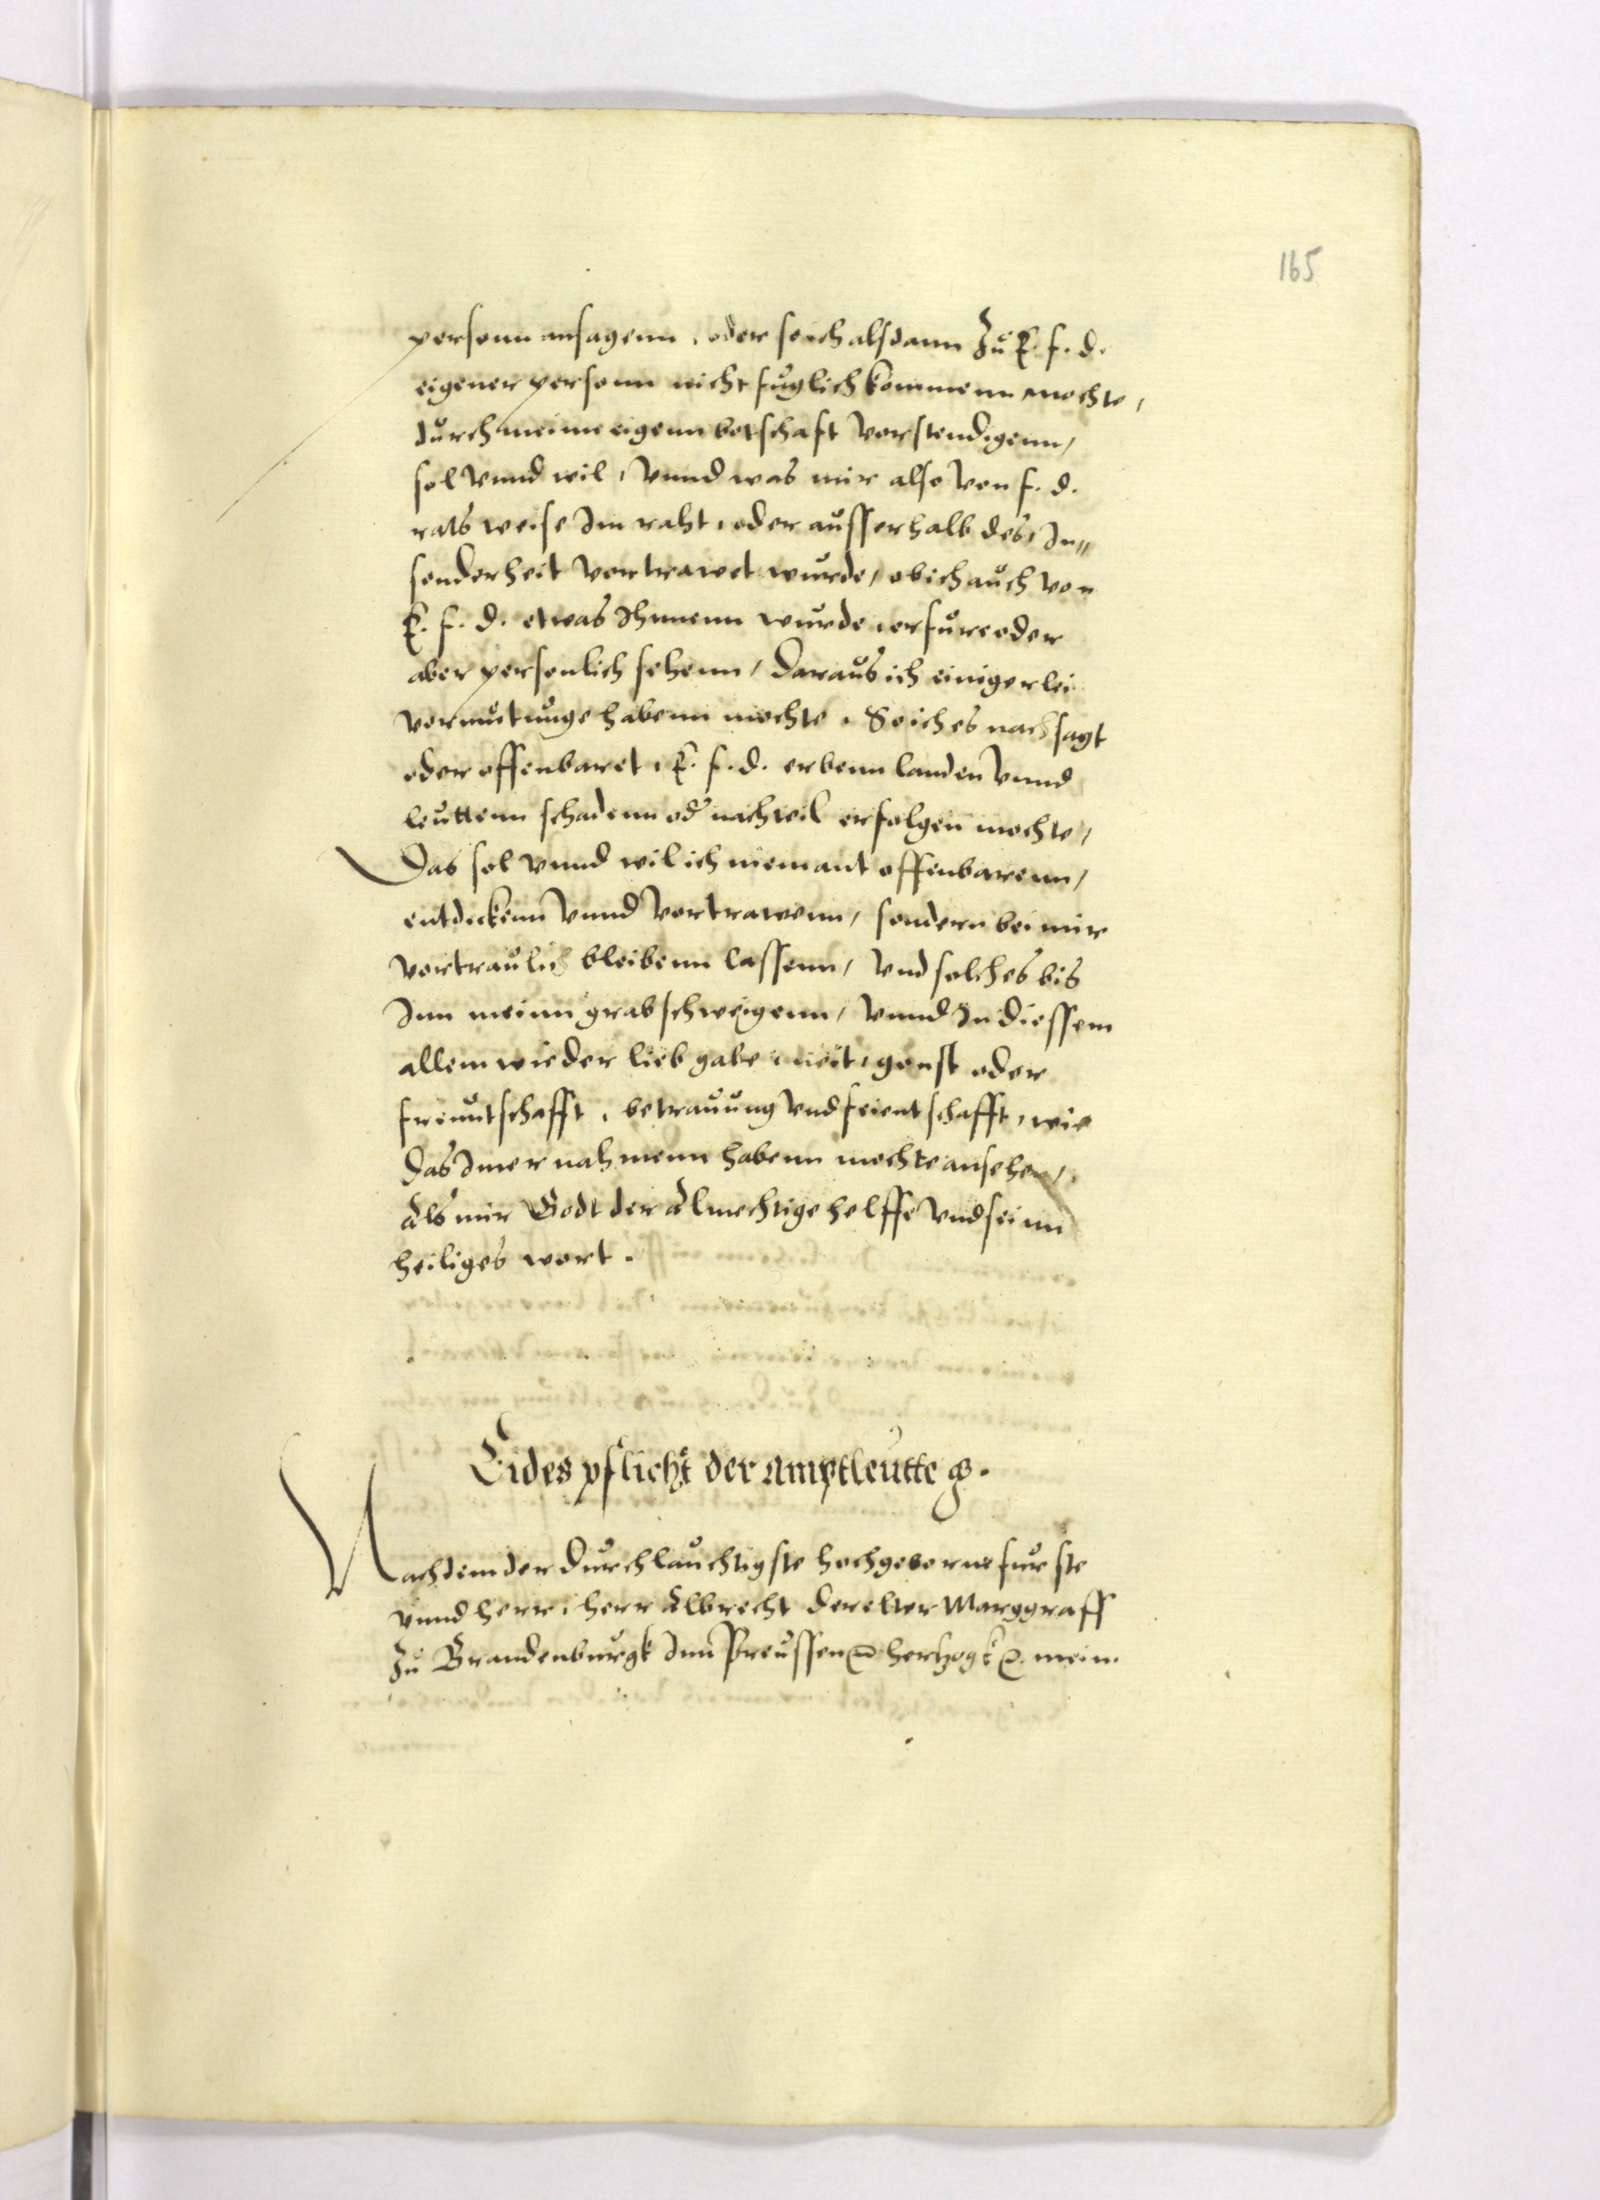 165
personn ansagenn, oder so ich alsdann Zu E. f. d.
eigener personn nicht fuglich kommenn mochte,
durch meine eigenn botschaft vorstendigenn,
sol vnnd wil, vnnd was mir also von f. d.
rats weise Im raht, oder ausserhalb des, In=
sonderheit vortrawet wurde, ob ich auch von
E. f. d. etwas Ihnnenn wurde, erfure oder
aber personlich sehenn, daraus ich einigerlei
vormutunge habenn mochte, So ich es nachsagt
oder offenbaret, E. f. d. erbenn landen vnnd
leuttenn schadenn od nachteil erfolgen mochte,
Das sol vnnd wil ich niemant offenbarenn,
entdickenn vnnd vortrawenn, sondern bei mir
vortraulich bleibenn lassenn, vnd solches bis
Inn meinn grab schweigenn, vnnd In diessem
allem wieder lieb gabe, neit, gonst oder
freuntschafft, betrauung vnd feientschafft, wie
das Imer nahmenn habenn mochte ansehen,
Als mir Godt der Almechtige helffe vnd seinn
heiliges wort.
Eides pflicht der Amptleutte
Nachdem der Durchlauchtigste hochgeborne furste
vnnd herr, herr Albrecht der elter Marggraff
Zu Brandenburgk Inn Preussen herzogk mein